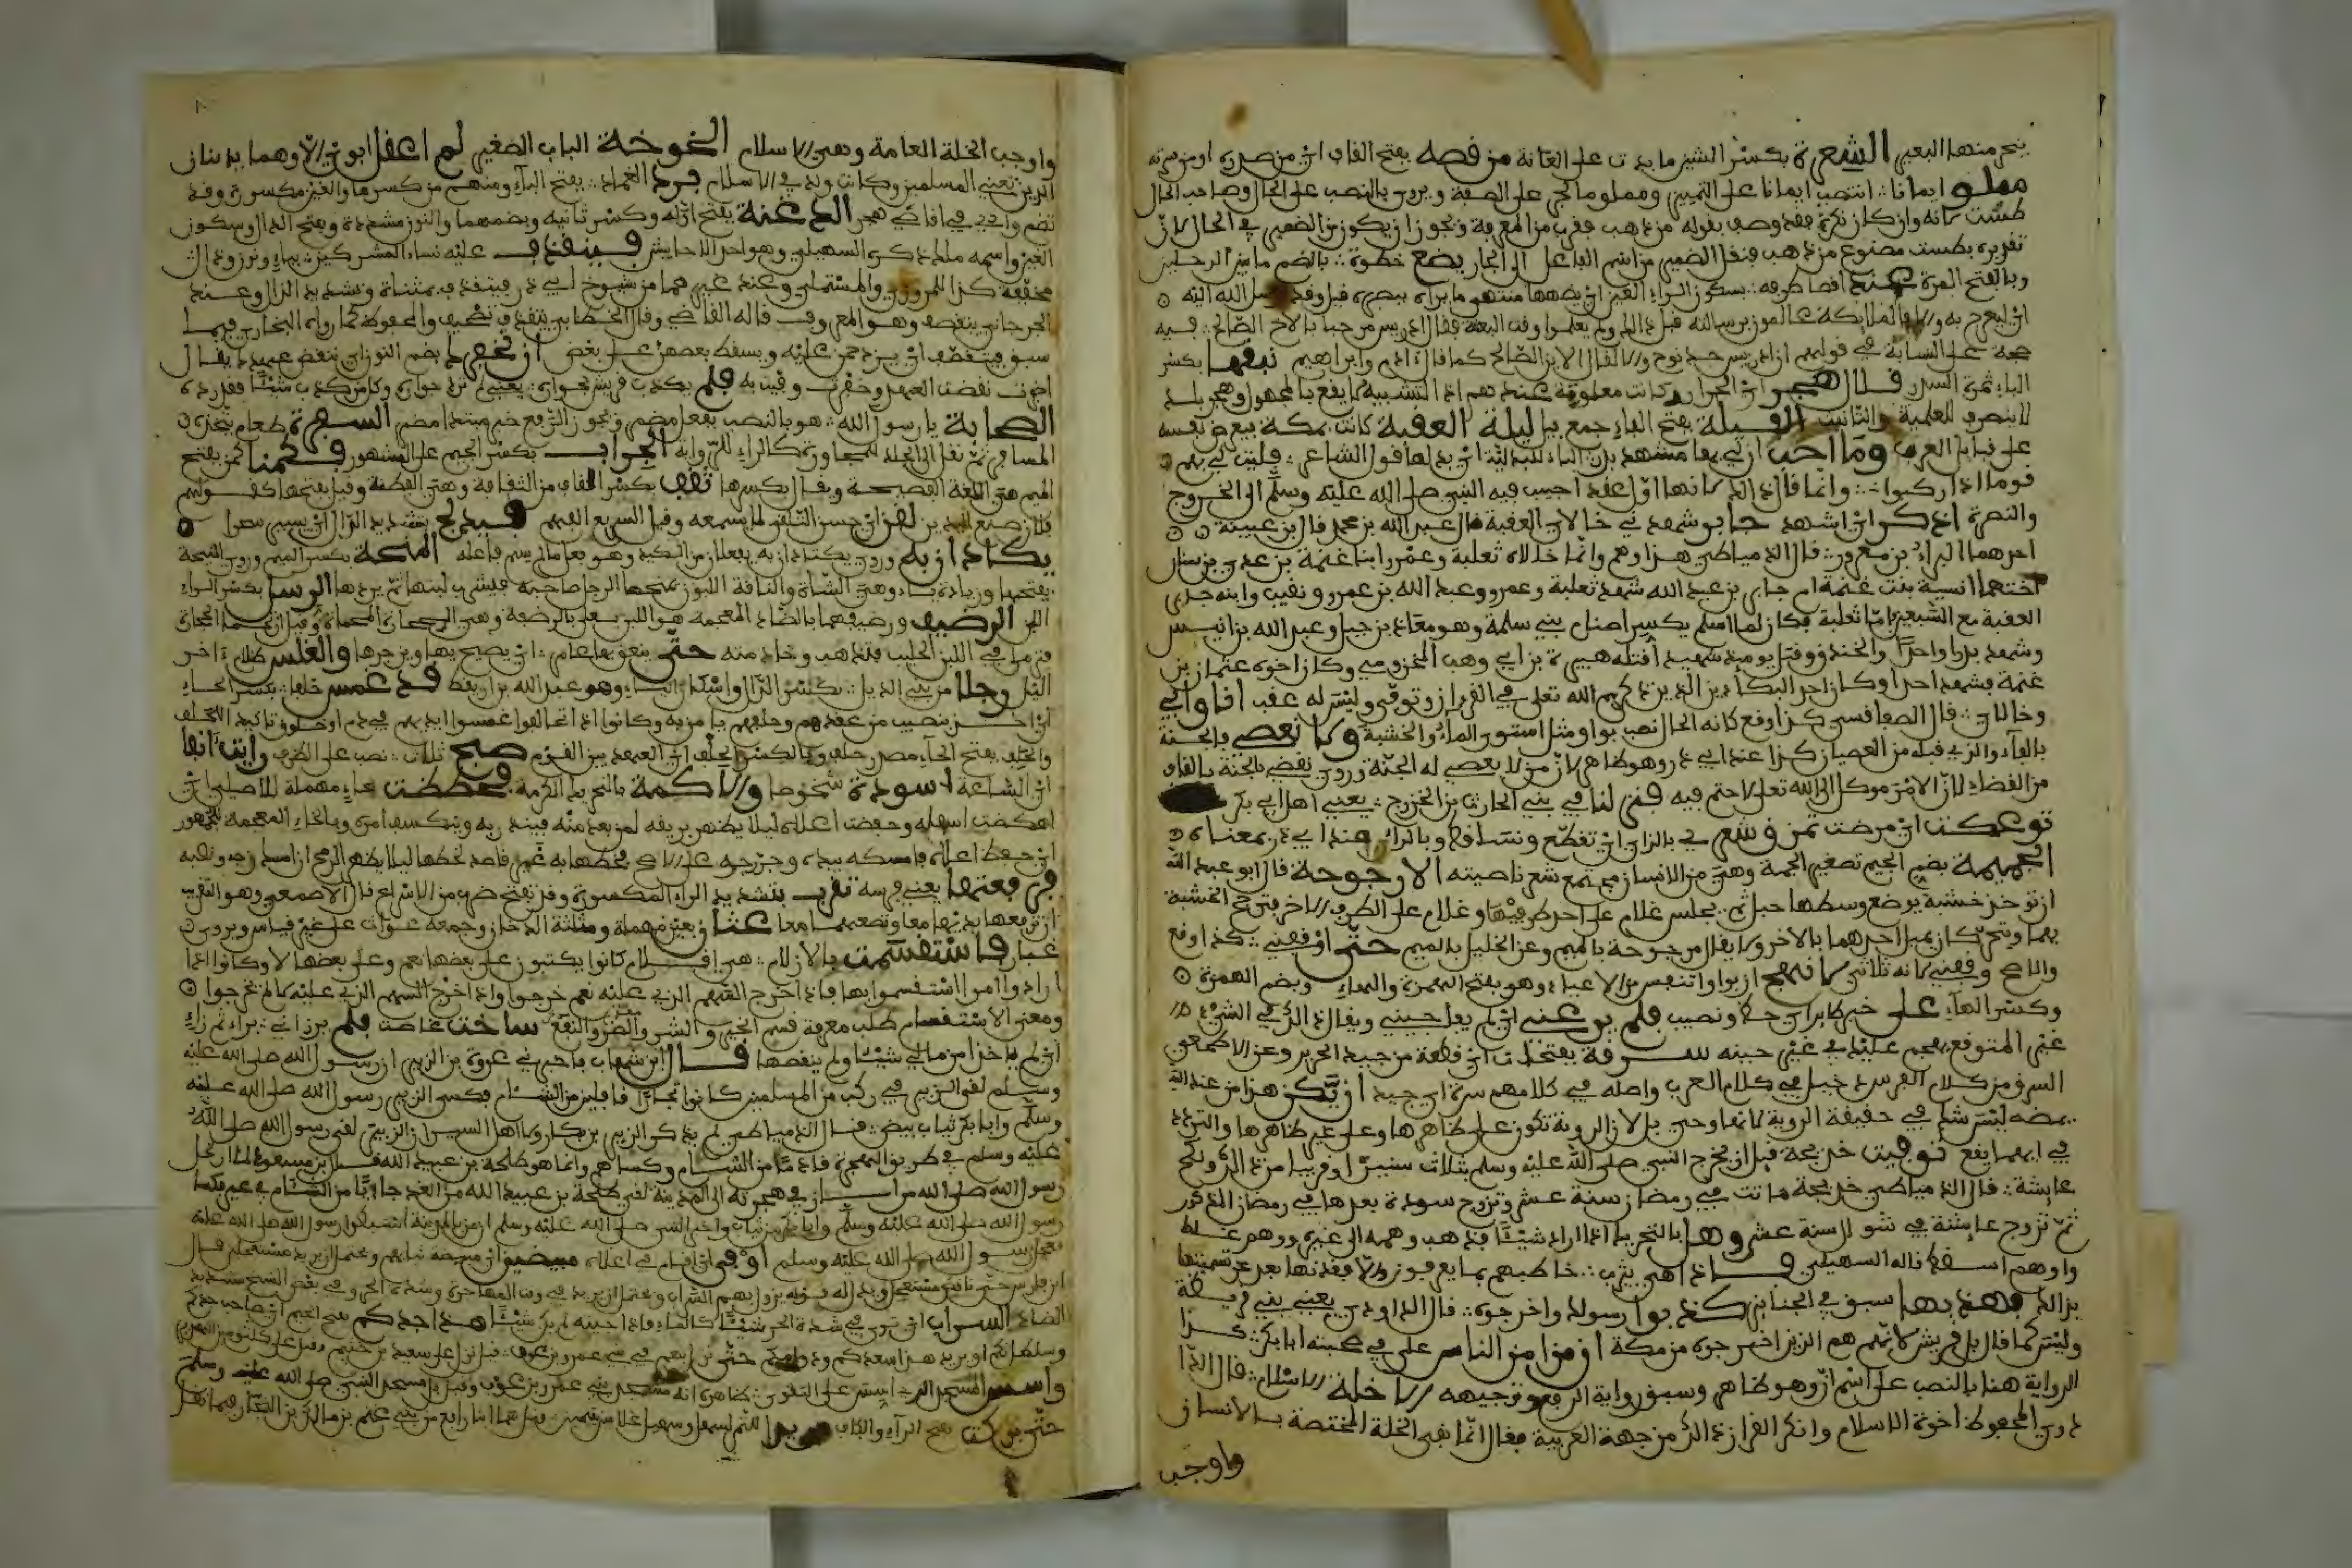 ينحر منها البعير الشعرة بكسر الشين ما ينبت على العانة من قصه بفتح القاف اي من صدره او من سرته
مملو ايمانا انتصب ايمانا على التمييز ومملو مالجر على الصفة ويروى بالنصب على الحال وصاحب الحال
طست لانه وان كان نكرة فقد وصف بقوله من ذهب فقرب من المعرفة ويجوز ان يكون من الضمير في الحال لان
تقديره بطست مصنوع من ذهب فنقل الضمير من اسم الفاعل الى الجار يضع خطوه بالضم ما بين الرجلين
وبالفتح المرة عند اقصا طرفه بسكون الراء العين اي يضعها منتهى ما يراه ببصره قيل وقد ارسل الله اليه
اي ليعرج به
في قولهم ان ادريس جد نوح والا لقال الابن الصالح كما قال ادم وابراهيم نبقها بكسر
الباء ثمرة السدر قلال هجر اي الجرار وكانت معلومة عندهم اذ التشبيه لا يقع بالمجهول وهجر بلد
لا ينصرف للعلمية والتانيث الفيلة بفتح الفاء جمع ليلة العقبة كانت بمكة يعرض نفسه
على قبايل العرب وما احب ان لي بها مشهد بدر الباء للبدلية اي بدلها قول الشاعر فليت لي بهم
قوما اذا ركبوا وانما قال ذلك لانها اول عقد اجيب فيه النبي صلى الله عليه وسلم الى الخروج
والنصرة اذكر اي اشهد جابر شهد بي خالاي العقبة قال عبد الله بن محمد قال بن عيينة
احدهما البراء بن معرور قال الدمياطي هذا وهم وانما خالاه ثعلبة وعمرو ابنا غنمة بن عدي بن سنان
اختهما انيسة بنت غنمة ام جابر بن عبد الله شهد ثعلبة وعمرو وعبد الله بن عمرو ونقيب وابنه جابر
العقبة مع السبعين اما ثعلبة فكان لما اسلم يكسر اصنام بني سلمة وهو معاذ بن جبل وعبد الله بن انيس
وشهد بدرا واحدا والخندق وقتل يوميذ شهيدا قتله هبيرة بن ابي وهب المخزومي وكان اخوه عثمان بن
غنمة فشهد احدا وكان احد البكايين الذين ذكرهم الله تعلى في القرءان وتوفي وليس له عقب انا وابي
وخالاي قال الصفاقسي كذا وقع كانه الحال نصب بواو مثل استوى الماء والخشبة ولا نعصي بالجنة
بالفاء والذي قبله من العصيان كذا عند ابي ذر وهو ظاهر لان من لا يعصي له الجنة وروي نقضي بالجنة بالقاف
من القضاء لان الامر موكل الى الله تعلى لا حتم فيه فنزلنا في بني الحارث بن الخزرج يعني اهل ابي بكر
فوعكت اي مرضت تمزق شعري بالزاي اي تقطع وتساقط وبالراء عند ابي ذر بمعناه
الجميمة بضم الجيم تصغير الجمة وهي من الانسان مجتمع شعر ناصيته الارجوحة قال ابو عبد الله
ان توخذ خشبة يوضع وسطها حبل ثم يجلس غلام على احد طرفيها وغلام على الطرف الاخر فترجح الخشبة
بهما ويتحركان يميل احدهما بالاخر ولا يقال مرجوحة بالميم وعن الخليل بالميم حتى اوقفتني كذا وقع
والاصح وقفتني لانه ثلاثي لانهج اربوا واتنفس من الاعياء وهو بفتح الهمزة والهاء وبضم الهمزة
وكسر الهاء على خير طاير اي حظ ونصيب فلم يرعني اي لم يفاجيني ويقال ذلك في الشيء
غير المتوقع يهجم عليك في غير حينه سرقة بفتحات اي قطعة من جيد الحرير وعن الاصمعي
السرق من كلام الفرس دخيل في كلام العرب واصله في كلامهم سره اي جيد ان يكن هذا من عند الله
يمضه ليس شك في حقيقة الروية لانها وحي بل لان الروية تكون على ظاهرها وعلى غير ظاهرها والتردد
في ايهما يقع توفيت خديجة قبل ان يخرج النبي صلى الله عليه وسلم بثلاث سنين او قريبا من ذلك ونكح
عايشة قال الدمياطي خديجة ماتت في رمضان سنة عشر وتزوج سودة بعدها في رمضان المذكور
ثم تزوج عايشة في شوال سنة عشر وهلي بالتحريك اذا اراد شيئا فذهب وهمه الى غيره ووهم غلط
واوهم اسقط قاله السهيلي فاذا هي يثرب خاطبهم بما يعرفون والا فقد نها بعد عن تسميتها
بذلك فهو يهدبها سبق في الجنايز كذبوا رسولك واخرجوه قال الداودي يعني بني قريظة
وليس كما قال بل قريش لانهم هم الذين اخرجوه من مكة ان من امن الناس علي في صحبته ابا بكر كذا
الرواية هنا بالنصب على اسم ان وهو ظاهر وسبق رواية الرفع وتوجيهه الا خلة الاسلام قال الدا
ودي المحفوظ اخوة الاسلام وانكر القزاز ذلك من جهة العربية فقال انما نفي الخلة المختصة بالانسان
واوجب
واوجب الخلة العامة وهي الاسلام الخوخة الباب الصغير لم اعقل ابوي الا وهما يدينان
الدين تعني المسلمين وكانت ولدت في الاسلام برك الغماد بفتح الباء ومنهم من كسرها والغين مكسورة وقد
تضم واد في اقاصي هجر الدغنة بفتح اوله وكسر ثانيه وبضمهما والنون مشددة وبفتح الدال وسكون
الغين واسمه مالك ذكره السهيلي وهو احد الاحابيش فينقذف عليه نساء المشركين بياء ونون وذال
مخففة كذا للمروزي والمستملي وعند غيرهما من شيوخ ابي ذر فيتقذف بمثناة وتشديد الذال وعند
الجرجاني ينقصف وهو المعروف قاله القاضي وقال الخطابي يتقذف تصحيف والمحفوظ كما رواه البخاري فيما
سبق فيتقصف اي يزدحمن عليه ويسقط بعضهن على بعض ان نخفرك بضم النون اي ننقض عهدك يقال
اخفرت نقضت العهد وخفرت وفيت به فلم تكذب قريش بجوار يعني لم ترد جواره وكل من كذب شيئا فقد رده
الصحابة يا رسول الله هو بالنصب بفعل مضمر ويجوز الرفع خبر مبتدا مضمر السفرة طعام يتخذه
المسافر ثم نقل الى الجلد الجراب بكسر الجيم على المشهور فكمنا كمن بفتح
الميم هي اللغة الفصيحة ويقال بكسرها ثقف بكسر القاف من الثقافة وهي الفطنة وقيل بفتحها كقولهم
لقن اي حسن التلقن لما يسمعه وقيل السريع الفهم فيدلج بتشديد الدال اي يسير سحرا
يكتادان به وروي يكتاد ان به يفتعلان من الكيد وهو بفعل ما لم يسم فاعله المنحة بكسر الميم وروي المنيحة
بفتحها وزيادة ياء وهي الشاة والناقة اللبون يمنحها الرجل صاحبه فيشرب لبنها ثم يردها الرسل بكسر الراء
اللبن الرضيف ورضيفهما بالضاد المعجمة هو اللبن يغلى بالرضفة وهي الحجارة المحماة
في اللبن الحليب فتذهب وخامته حتى ينعق بها عامر اي يصيح بها ويزجرها والغلس ظلام اخر
الليل رجلا من بني الديل بكسر الدال واسكان الياء وهو عبد الله بن اريقط قد غمس حلفا بكسر الحاء
اي اخذ بنصيب من عقدهم وحلفهم يامن به وكانوا اذا تحالفوا غمسوا ايديهم في دم او خلوق تاكيد الحلف
والحلف بفتح الحاء مصدر حلف وبالكسر الحلف اي العهد بين القوم صبح ثلاث نصب على الظرف رايت انفا
اي الساعة اسودة شخوصا والاكمة بالتحريك الكومة فحططت بحاء مهملة للاصيلي اي
امكنت اسفله وخفضت اعلاه ليلا يظهر بريقه لمن بعد منه فينذر به وينكشف امره وبالخاء المعجمة للجمهور
اي خفض اعلاه فامسكه بيده وجر زجه على الارض فخطها به غير قاصد لخطها ليلا يظهر الرمح ان امسك زجه ونصبه
فرفعتها يعني فرسه تقرب بتشديد الراء المكسورة وقد تفتح ضرب من الاسراع قال الاصمعي وهو التقريب
ان ترفع يديها معا وتضعهما معا عثان بعين مهملة ومثلثة الدخان وجمعه عواثن على غير قياس ويروى
غبار فاستقسمت بالازلام هي اقلام كانوا يكتبون على بعضها نعم وعلى بعضها لا وكانوا اذا
ارادوا امرا استقسموا بها فاذا خرج السهم الذي عليه نعم خرجوا واذا خرج السهم الذي عليه لا لم يخرجوا
ومعنى الاستقسام طلب معرفة قسم الخير والشر والضر والنفع ساخت غاصت فلم يرزاني براء ثم زاي
اي لم ياخذا من مالي شيئا ولم ينقصاه قال ابن شهاب فاخبرني عروة بن الزبير ان رسول الله صلى الله عليه
وسلم لقي الزبير في ركب من المسلمين كانوا تجارا قافلين من الشام فكسى الزبير رسول الله صلى الله عليه
وسلم وابا بكر ثياب بيض قال الدمياطي لم يذكر الزبير بن بكار ولا اهل السير ان الزبير لقي رسول الله صلى الله
عليه وسلم في طريق الهجرة قادما من الشام وكساهم وانما هو طلحة بن عبيد الله لما ارتحل
رسول الله صلى الله في هجرته الى المدينة لقي طلحة بن عبيد الله من الغد جاءيا من الشام في عير فكسا
رسول الله صلى الله عليه وسلم وابا بكر من ثياب واخبر النبي صلى الله عليه وسلم ان من بالمدينة استبطوا رسول الله صلى الله عليه
فعجل رسول الله صلى الله عليه وسلم اوفى اي اقام في اعلاه مبيضين
السراب اي يرى في شدة الحر شيئا كالماء فاذا جيته لم تر شيئا هذا جدكم يعني الجيم اي صاحب جدكم
وسلطانكم او يريد هذا سعدكم حتى نزل بهم في بني عمرو بن عوف قيل نزل على سعد بن خيثم وقيل على كلثوم
واسس المسجد الذي اسس على التقوى ظاهره انه مسجد بني عمرو بن عوف وقيل بل مسجد النبي صلى الله عليه وسلم
حتى بركت بفتح الراء والكاف مربدا للتمر لسهل وسهيل غلامين يتيمين